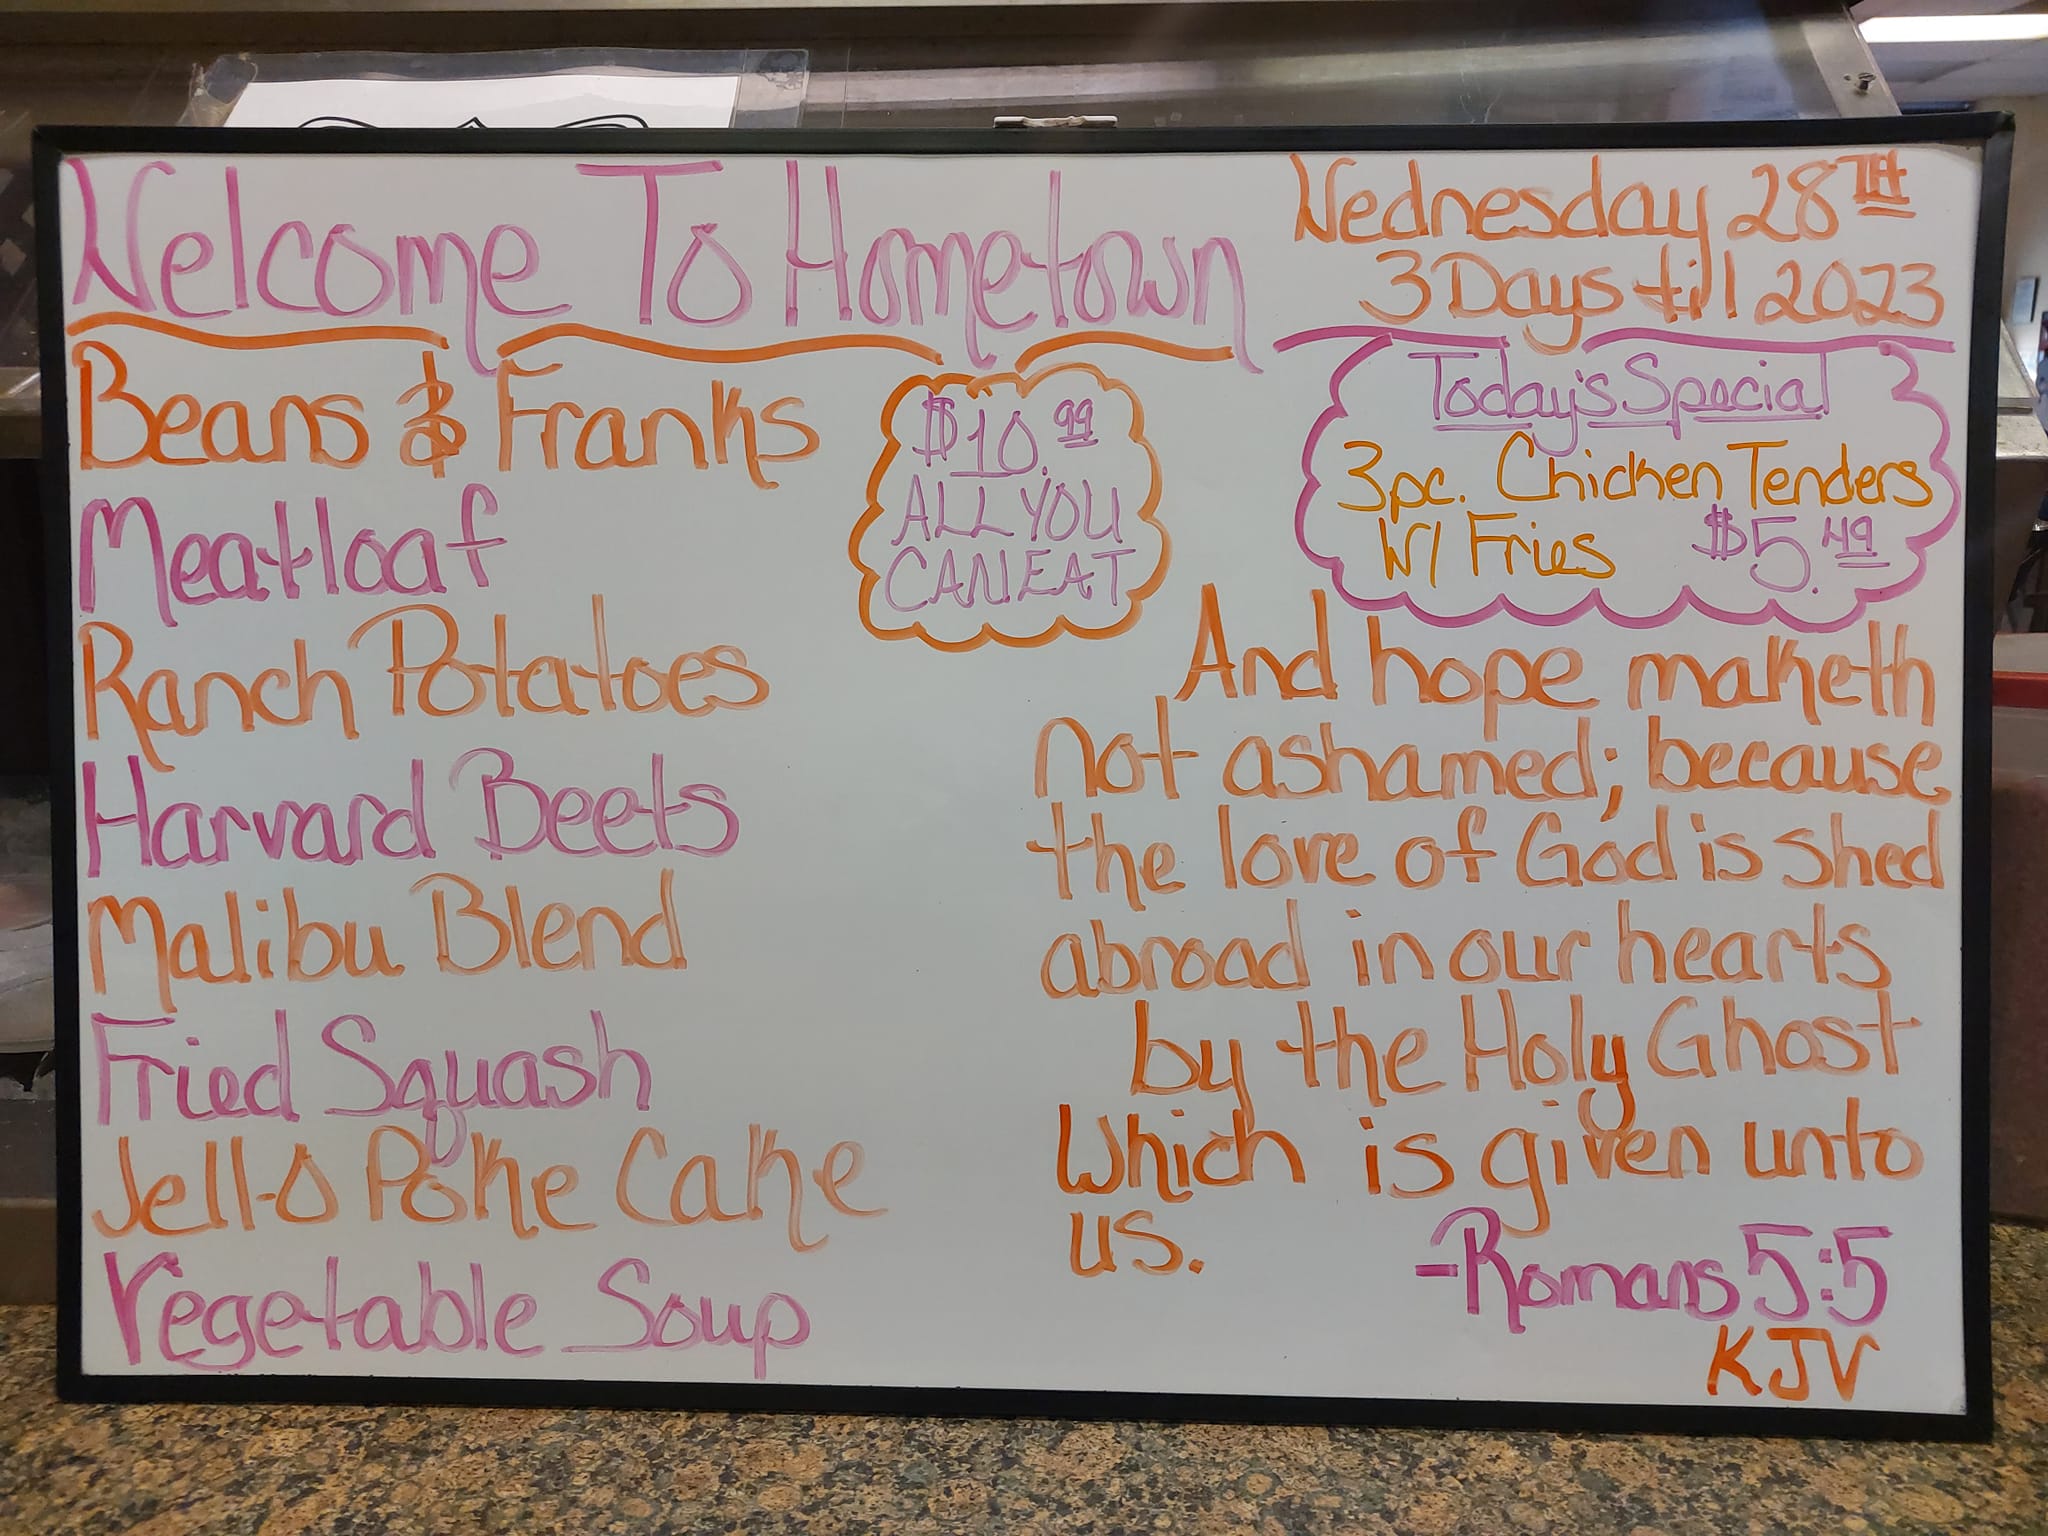 Welcome To Hometown
Wednesday 28TH
3 Days till 2023
Beans & Franks
Meatloaf
Ranch Potatoes
Harvard Beets
Malibu Blend
Fried Squash
Jell-O Poke Cake
Vegetable Soup
$10.99
ALL YOU
CAN EAT
Today's Special
3pc. Chicken Tenders
W/ Fries $5.49
And hope maketh
not ashamed; because
the love of God is shed
abroad in our hearts
by the Holy Ghost
Which is given unto
us.
-Romans 5:5
KJV